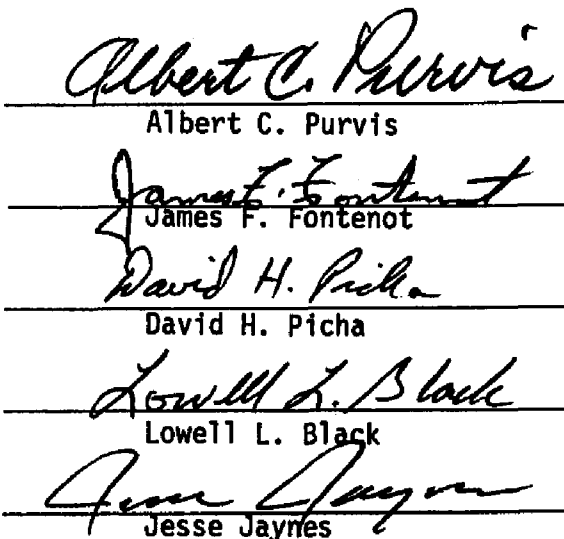 Albert C. Purvis
Albert C. Purvis
James F. Fontenot
James F. Fontenot
David H. Picha
David H. Picha
Lowell L. Black
Lowell L. Black
Jesse Jaynes
Jesse Jaynes